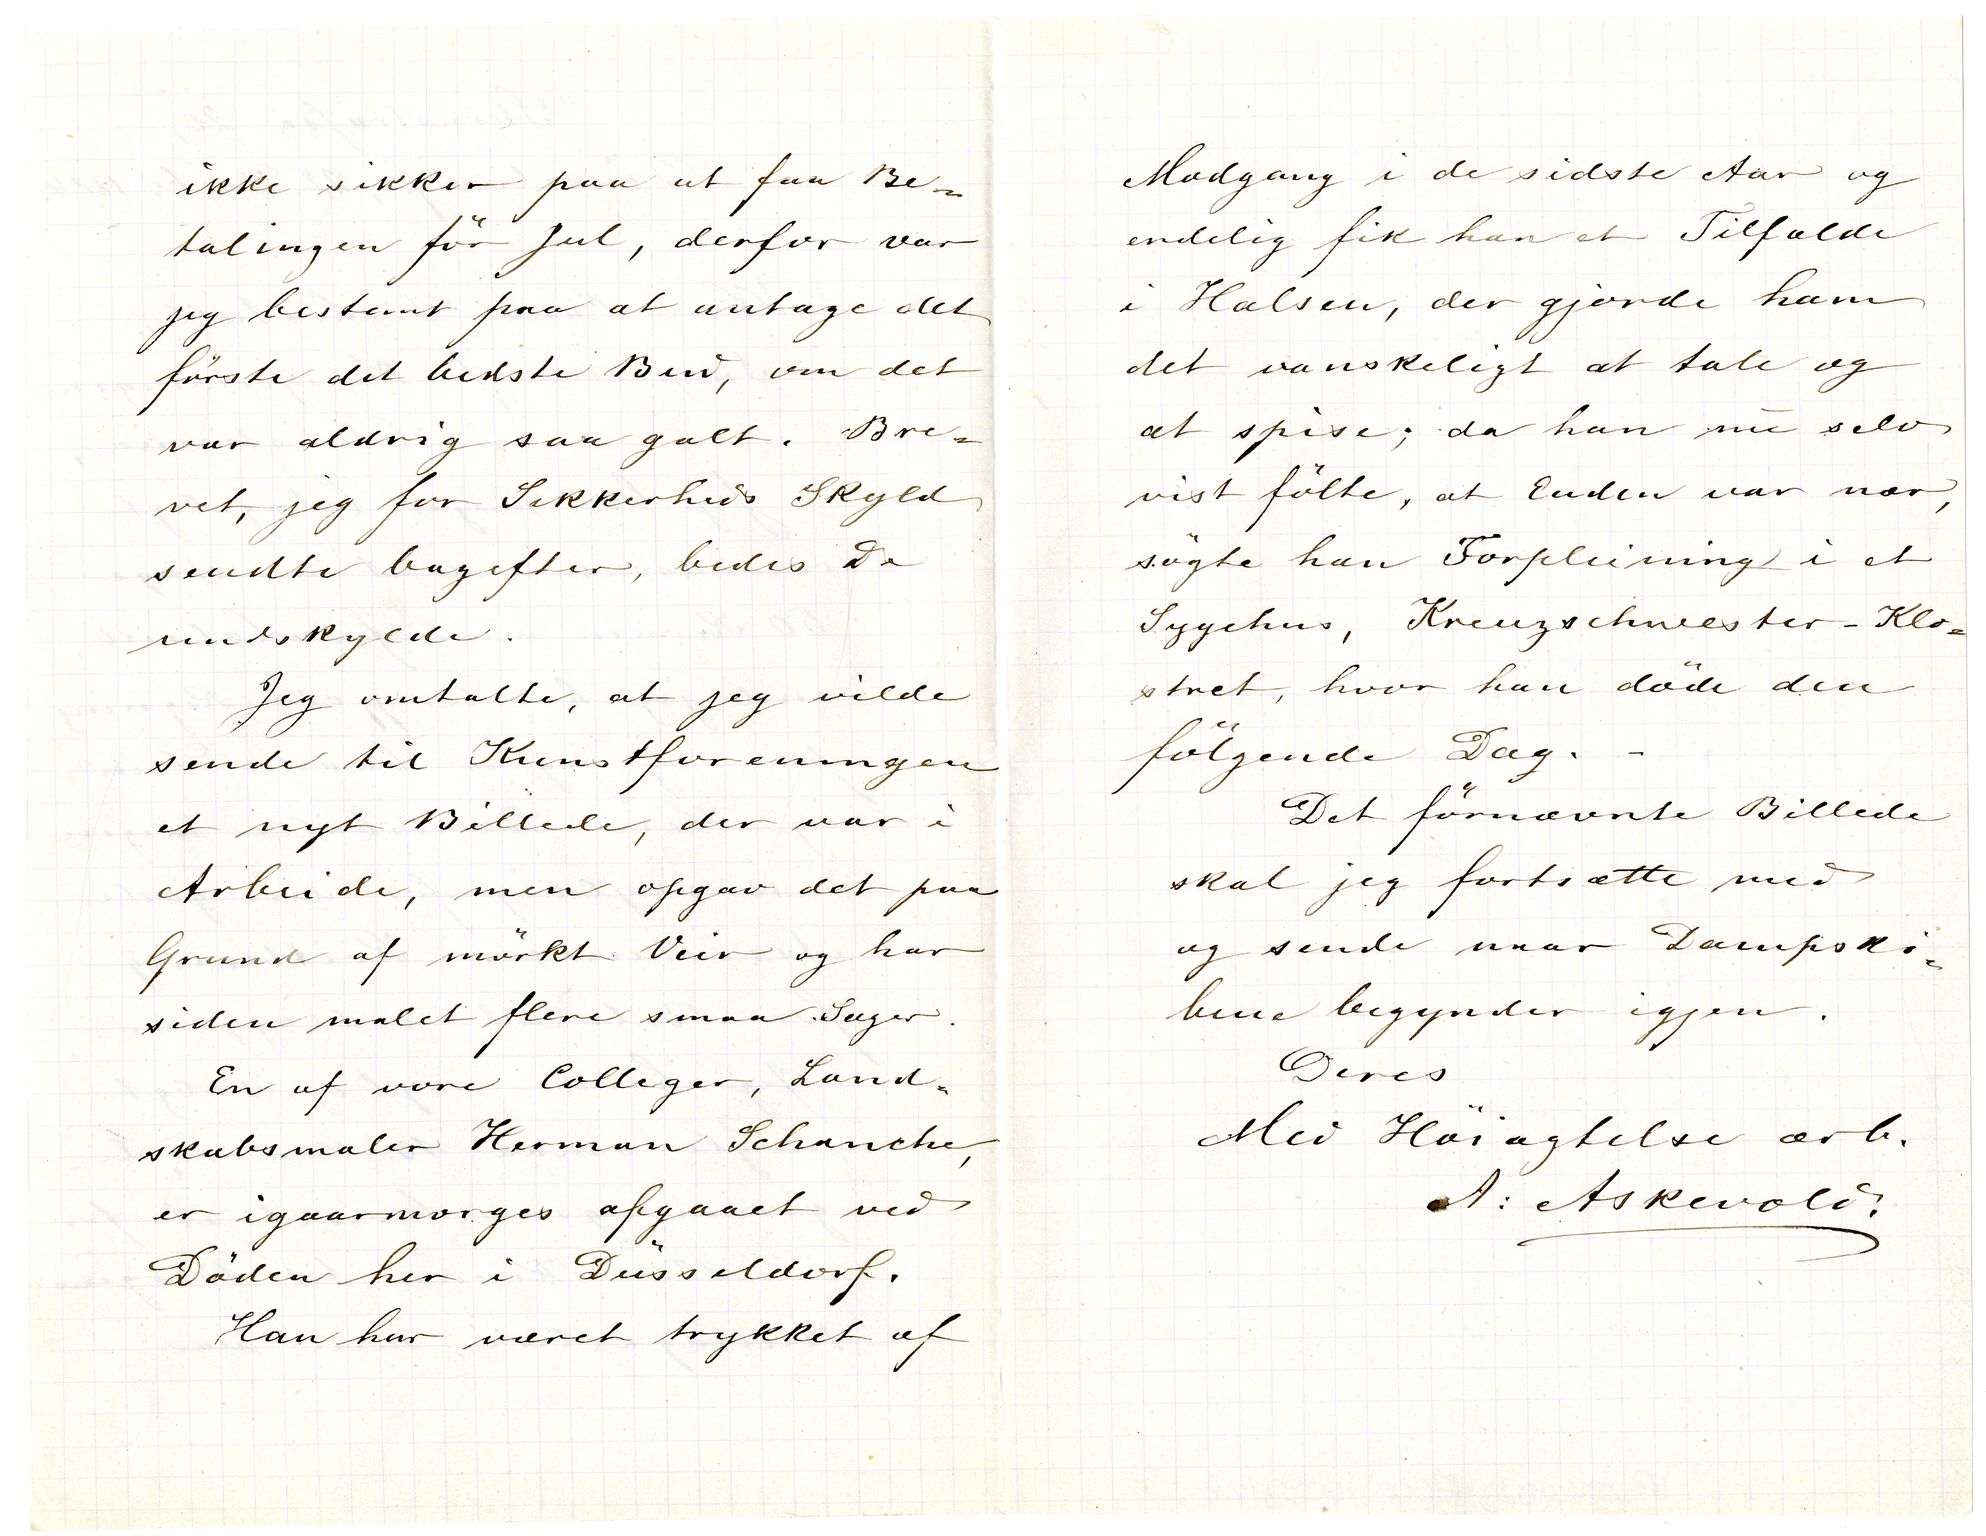 ikke sikker paa at faa Be=
talingen för Jul, derfor var
jeg bestemt paa at antage det
förste det bedste Bud, om det
var aldrig saa galt. Bre=
vet, jeg for Sikkerheds Skyld
sendte bagefter, bedes De
undskylde.
Jeg omtalte, at jeg vilde
sende til Kunstforeningen
et nyt Billede, der var i
Arbeide, men opgav det paa
Grund af mörkt Veir og har
siden malet flere smaa Sager.
En af vore Colleger, Land=
skabsmaler Herman Schanche,
er igaarmorges afgaaet ved
Döden her i Düsseldorf.
Han har været trykket af
Modgang i de sidste Aar og
endelig fik han et Tilfælde
i Halsen, der gjorde ham
det vanskeligt at tale og
at spise; da han nu selv
vist fölte, at Enden var nær,
sögte han Forpleining i et
Sygehus, Kreuzschwester-Klo=
stret, hvor han döde den
fölgende Dag. -
Det förnævnte Billede
skal jeg fortsætte med
og sende naar Dampski=
bene begynder igjen.
Deres
Med Höiagtelse ærb.
A: Askevold.